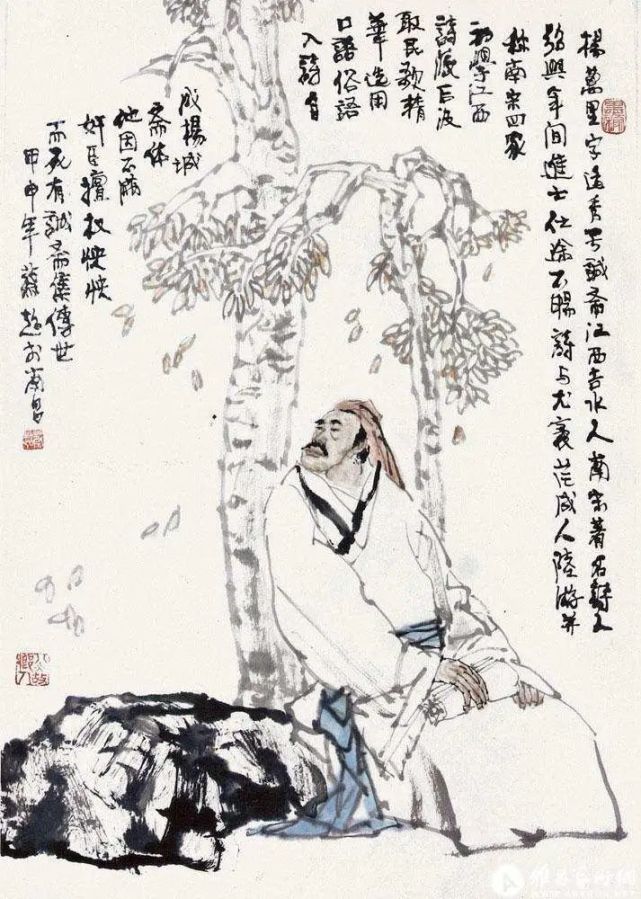 楊萬里字廷秀号誠斋江西吉水人南宋著名詩人
绍興年间進士仕途不暢詩与尤袤范成大陸游并
称南宋四家
初學江西
詩派后汲
取民歌精
華选用
口語俗語
入詩自
成楊城
斋体
他因不滿
奸臣擅权怏怏
而死有誠斋集傳世
甲申年於南昌
雅昌艺术网